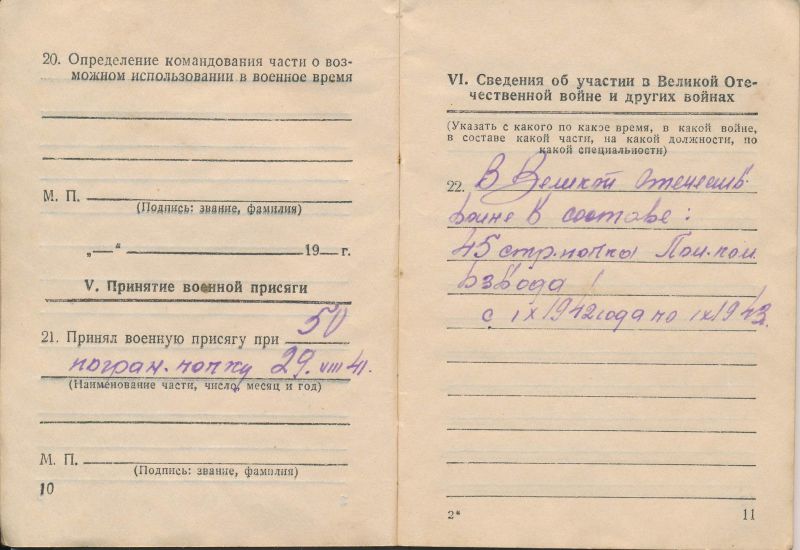 20. Определение командования части о воз-
можном использовании в военное время
М. П.
(Подпись: звание, фамилия)
„—“ 19— г.
V. Принятие военной присяги
21. Принял военную присягу при 50
погран. полку 29. VIII 41.
(Наименование части, число, месяц и год)
М. П.
(Подпись: звание, фамилия)
10
VI. Сведения об участии в Великой Оте-
чественной войне и других войнах
(Указать с какого по какое время, в какой войне,
в составе какой части, на какой должности, по
какой специальности)
22. В Великой Отечеств.
войне в составе:
45 стр. полка Пом. ком.
взвода
с IX 1942 года по IX 1943.
2*
11